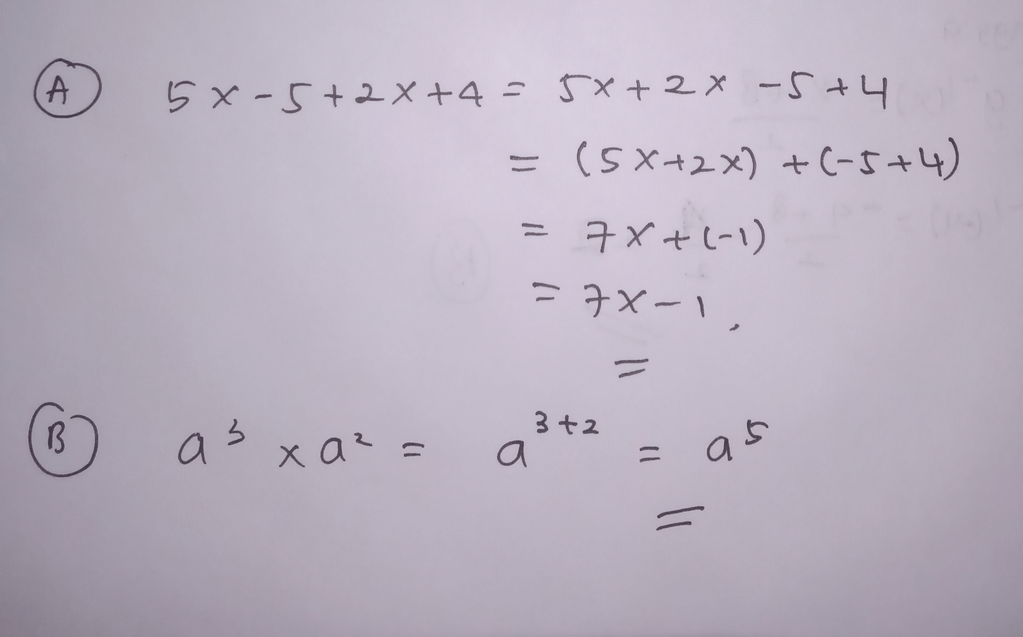 (A) 5x-5+2x+4 = 5x+2x-5+4
= (5x+2x)+(-5+4)
= 7x+(-1)
= 7x-1,
=
(B) a³ x a² = a³⁺² = a⁵
=